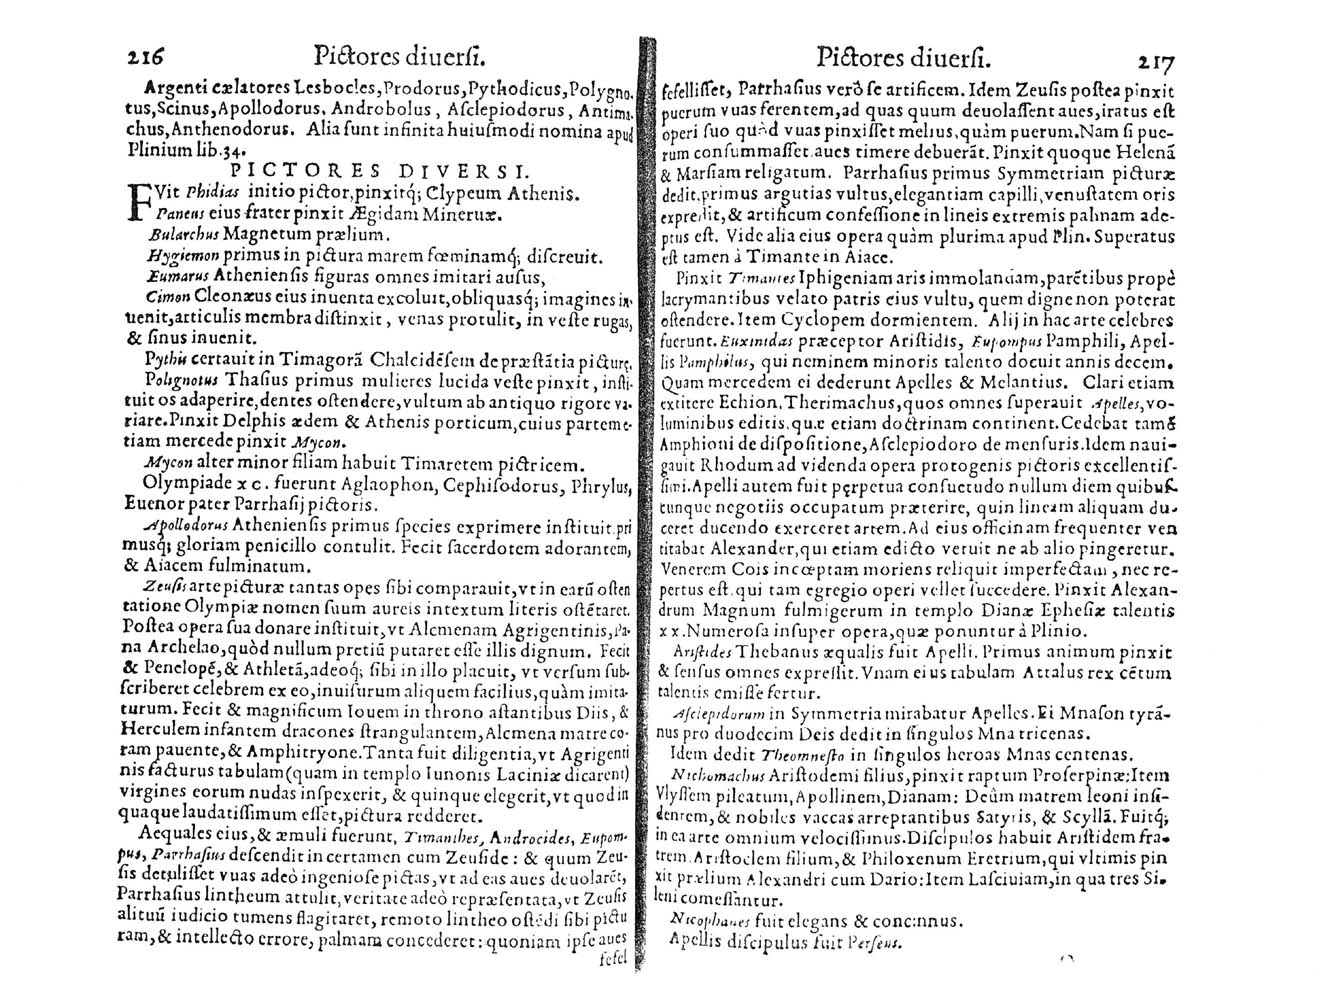 216 Pictores diuerſi.
Argenti cælatores Lesbocles, Prodorus, Pythodicus, Polygno-
tus, Scinus, Apollodorus, Androbolus, Aſclepiodorus, Antima-
chus, Anthenodorus. Alia ſunt infinita huiuſmodi nomina apud
Plinium lib. 34.
PICTORES DIVERSI.
FVit Phidias initio pictor, pinxitq́; Clypeum Athenis.
Paneus eius frater pinxit Ægidam Mineruæ.
Bularchus Magnetum prælium.
Hygiemon primus in pictura marem fœminamq́; diſcreuit.
Eumarus Athenienſis figuras omnes imitari auſus,
Cimon Cleonæus eius inuenta excoluit, obliquasq́; imagines in-
uenit, articulis membra diſtinxit, venas protulit, in veſte rugas,
& ſinus inuenit.
Pythis certauit in Timagorã Chalcidẽſem de præſtãtia picturę.
Polignotus Thaſius primus mulieres lucida veſte pinxit, inſti-
tuit os adaperire, dentes oſtendere, vultum ab antiquo rigore va-
riare. Pinxit Delphis ædem & Athenis porticum, cuius partem e-
tiam mercede pinxit Mycon.
Mycon alter minor filiam habuit Timaretem pictricem.
Olympiade xc. fuerunt Aglaophon, Cephiſodorus, Phrylus,
Euenor pater Parrhaſij pictoris.
Apollodorus Athenienſis primus ſpecies exprimere inſtituit, pri
musq́; gloriam penicillo contulit. Fecit ſacerdotem adorantem,
& Aiacem fulminatum.
Zeuſis arte picturæ tantas opes ſibi comparauit, vt in earũ oſten
tatione Olympiæ nomen ſuum aureis intextum literis oſtẽtaret.
Poſtea opera ſua donare inſtituit, vt Alcmenam Agrigentinis, Pa-
na Archelao, quòd nullum pretiũ putaret eſſe illis dignum. Fecit
& Penelopẽ, & Athletã, adeoq́; ſibi in illo placuit, vt verſum ſub-
ſcriberet celebrem ex eo, inuiſurum aliquem facilius, quàm imita-
turum. Fecit & magnificum Iouem in throno aſtantibus Diis, &
Herculem infantem dracones ſtrangulantem, Alcmena matre co-
ram pauente, & Amphitryone. Tanta fuit diligentia, vt Agrigenti
nis facturus tabulam (quam in templo Iunonis Laciniæ dicarent)
virgines eorum nudas inſpexerit, & quinque elegerit, vt quod in
quaque laudatiſſimum eſſet, pictura redderet.
Aequales eius, & æmuli fuerunt, Timanthes, Androcides, Eupom-
pus, Parrhaſius deſcendit in certamen cum Zeuſide: & quum Zeu-
ſis detuliſſet vuas adeò ingenioſe pictas, vt ad eas aues deuolarẽt,
Parrhaſius lintheum attulit, veritate adeò repræſentata, vt Zeuſis
alituũ iudicio tumens flagitaret, remoto lintheo oſtẽdi ſibi pictu
ram, & intellecto errore, palmam concederet: quoniam ipſe aues
fefel
Pictores diuerſi. 217
fefelliſſet, Patrhaſius verò ſe artificem. Idem Zeuſis poſtea pinxit
puerum vuas ferentem, ad quas quum deuolaſſent aues, iratus eſt
operi ſuo quòd vuas pinxiſſet melius, quàm puerum. Nam ſi pue-
rum conſummaſſet, aues timere debuerãt. Pinxit quoque Helenã
& Marſiam religatum. Parrhaſius primus Symmetriam picturæ
dedit, primus argutias vultus, elegantiam capilli, venuſtatem oris
expreſſit, & artificum confeſſione in lineis extremis palmam ade-
ptus eſt. Vide alia eius opera quàm plurima apud Plin. Superatus
eſt tamen à Timante in Aiace.
Pinxit Timantes Iphigeniam aris immolandam, parẽtibus propè
lacrymantibus velato patris eius vultu, quem digne non poterat
oſtendere. Item Cyclopem dormientem. Alij in hac arte celebres
fuerunt. Euxinidas præceptor Ariſtidis, Eupompus Pamphili, Apel-
lis Pamphilus, qui neminem minoris talento docuit annis decem.
Quam mercedem ei dederunt Apelles & Melantius. Clari etiam
extitere Echion, Therimachus, quos omnes ſuperauit Apelles, vo-
luminibus editis, quæ etiam doctrinam continent. Cedebat tamẽ
Amphioni de diſpoſitione, Aſclepiodoro de menſuris. Idem naui-
gauit Rhodum ad videnda opera protogenis pictoris excellentiſ-
ſimi. Apelli autem fuit pęrpetua conſuetudo nullum diem quibuſ-
cunque negotiis occupatum præterire, quin lineam aliquam du-
ceret ducendo exerceret artem. Ad eius officinam frequenter ven
titabat Alexander, qui etiam edicto vetuit ne ab alio pingeretur.
Venerem Cois incœptam moriens reliquit imperfectam, nec re-
pertus eſt, qui tam egregio operi vellet ſuccedere. Pinxit Alexan-
drum Magnum fulmigerum in templo Dianæ Epheſiæ talentis
xx. Numeroſa inſuper opera, quæ ponuntur à Plinio.
Ariſtides Thebanus æqualis fuit Apelli. Primus animum pinxit
& ſenſus omnes expreſſit. Vnam eius tabulam Attalus rex cẽtum
talentis emiſſe fertur.
Aſclepidorum in Symmetria mirabatur Apelles. Ei Mnaſon tyrã-
nus pro duodecim Deis dedit in ſingulos Mna tricenas.
Idem dedit Theomneſto in ſingulos heroas Mnas centenas.
Nichomachus Ariſtodemi filius, pinxit raptum Proſerpinæ: Item
Vlyſſem pileatum, Apollinem, Dianam: Deûm matrem leoni inſi-
dentem, & nobiles vaccas arreptantibus Satyris, & Scyllã. Fuitq́;
in ea arte omnium velociſſimus. Diſcipulos habuit Ariſtidem fra-
trem, Ariſtoclem filium, & Philoxenum Eretrium, qui vltimis pin
xit prælium Alexandri cum Dario: Item Laſciuiam, in qua tres Si-
leni comeſſantur.
Nicophanes fuit elegans & concinnus.
Apellis diſcipulus fuit Perſeus.